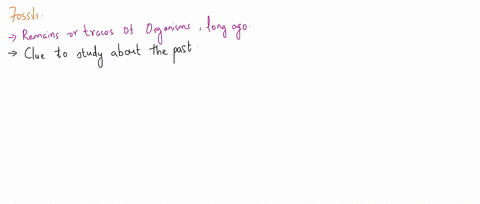 Fossils:
→ Remains or traces of Organisms, long ago.
→ Clue to study about the past.